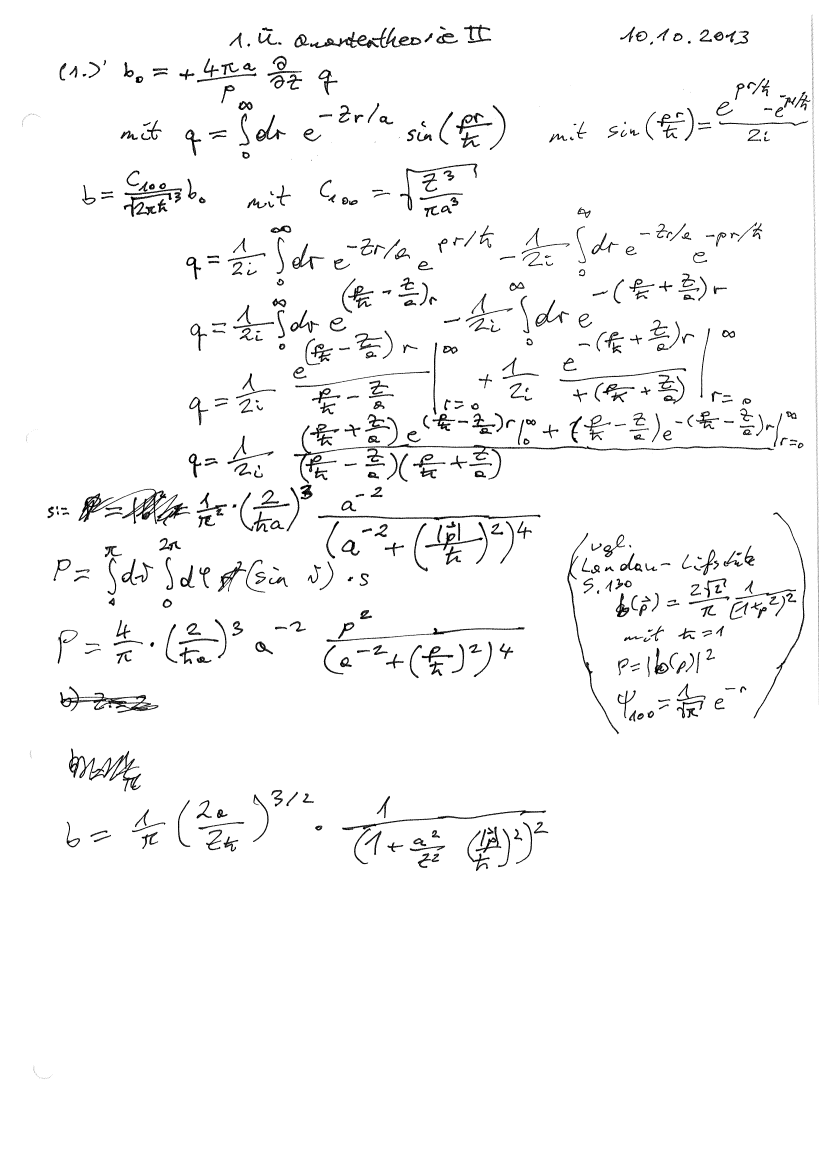 1. Ü. Quantentheorie II 10.10.2013
(1.)' b₀ = + 4πa/p ∂/∂z q
mit q = ∫₀^∞ dr e^(-Zr/a) sin(pr/ħ) mit sin(pr/ħ) = (e^(pr/ħ) - e^(-pr/ħ))/2i
b = C₁₀₀/√(2πħ)³ b₀ mit C₁₀₀ = √(Z³/πa³)
q = 1/2i ∫₀^∞ dr e^(-Zr/a) e^(pr/ħ) - 1/2i ∫₀^∞ dr e^(-Zr/a) e^(-pr/ħ)
q = 1/2i ∫₀^∞ dr e^((p/ħ - Z/a)r) - 1/2i ∫₀^∞ dr e^(-(p/ħ + Z/a)r)
q = 1/2i e^((p/ħ - Z/a)r)/(p/ħ - Z/a) |_(r=0)^∞ + 1/2i e^(-(p/ħ + Z/a)r)/(+(p/ħ + Z/a)) |_(r=0)^∞
q = 1/2i ((p/ħ + Z/a) e^((p/ħ - Z/a)r)|₀^∞ + (p/ħ - Z/a) e^(-(p/ħ - Z/a)r)|_(r=0)^∞)/((p/ħ - Z/a)(p/ħ + Z/a))
s:= 1/π² · (2/ħa)³ a⁻²/(a⁻² + (|p⃗|/ħ)²)⁴
P = ∫^π dϑ ∫₀^2π dφ (sin ϑ) · s
P = 4/π · (2/ħa)³ a⁻² p²/(a⁻² + (p/ħ)²)⁴
(vgl.
Landau-Lifschitz
S. 130
b(p⃗) = 2√2/π 1/(1+p²)²
mit ħ=1
P = |b(p)|²
Ψ₁₀₀ = 1/√π e^(-r))
b = 1/π (2a/Zħ)^(3/2) · 1/(1 + a²/Z² (|p⃗|/ħ)²)²